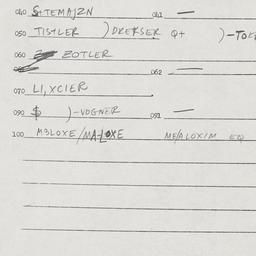 040 S+TEMAJZN 041 —
050 TISTLER ) DRERSER Q+ )-TOK
060 ZOTLER
062 —
070 LI,XCIER
090 $ )-VOGNER 091 —
100 MBLOXE/MALOXE ME/ALOXIM EQ